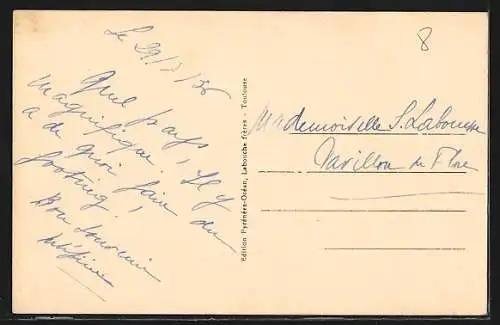 Le 29/3/36
Quel pays,
magnifique! Il y
a de quoi faire du
footing!
Bon souvenir
Edition Pyrénées-Océan, Labouche frères - Toulouse
8
Mademoiselle S. Labousse
Pavillon de Flore